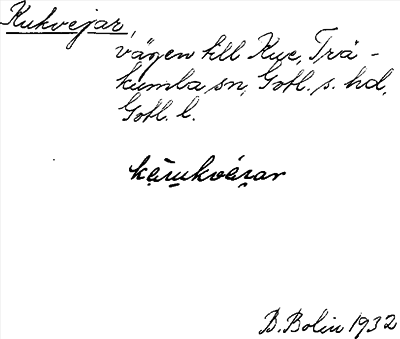 Kukvejar,
vägen till Kuc, Trä-
kumla sn, Gotl. s. hd,
Gotl. l.
B. Bolin 1932